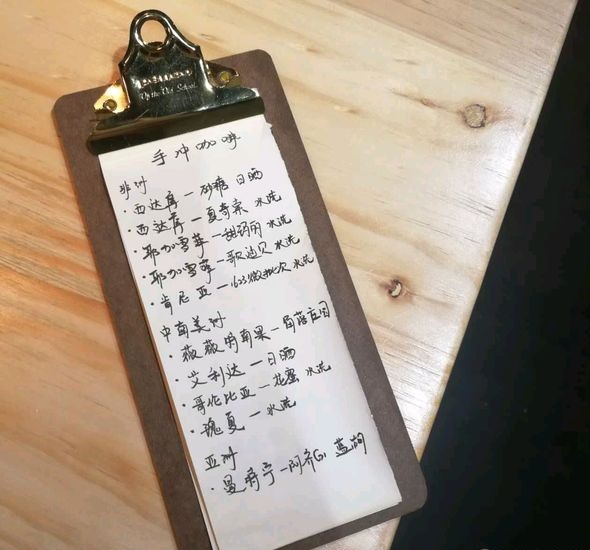 Up the Old School
手冲咖啡
非洲
·西达摩—砂糖 日晒
·西达摩—夏奇索 水洗
·耶加雪菲—甜玛丽 水洗
·耶加雪菲—歌迪贝 水洗
·肯尼亚—1623微批次 水洗
中南美洲
·薇薇特南果—庄园
·艾利达—日晒
·哥伦比亚—花蜜 水洗
·瑰夏—水洗
亚洲
·曼特宁—阿齐G1 蓝湖